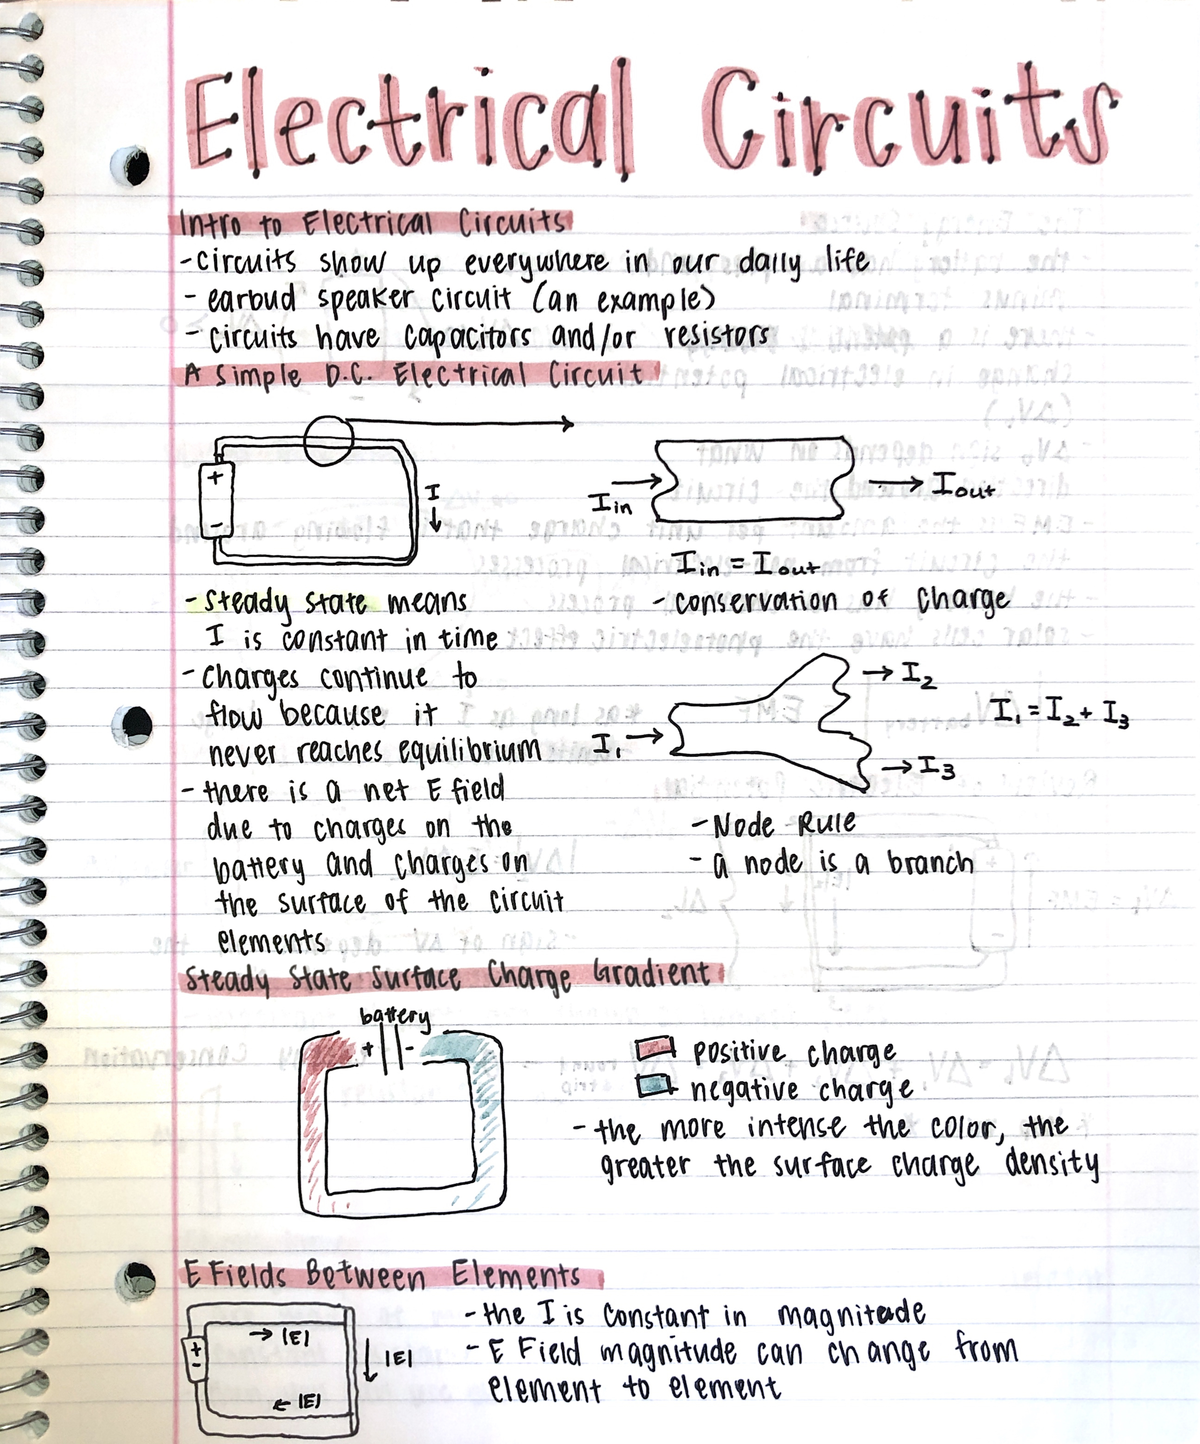 Electrical Circuits
Intro to Electrical Circuits
-circuits show up everywhere in our daily life
- earbud speaker circuit (an example)
- circuits have capacitors and/or resistors
A Simple D.C. Electrical Circuit
+
-
I
I in
I out
I in = I out
-steady state means
I is constant in time
-charges continue to
flow because it
never reaches equilibrium
- there is a net E field
due to charges on the
battery and charges on
the surface of the circuit
elements
-conservation of charge
I₁
I₂
I₃
I₁ = I₂ + I₃
-Node Rule
- a node is a branch
Steady State Surface Charge Gradient
battery
+ -
positive charge
negative charge
- the more intense the color, the
greater the surface charge density
E Fields Between Elements
+
-
→ |E|
↓ |E|
← |E|
-the I is constant in magnitude
- E Field magnitude can change from
element to element